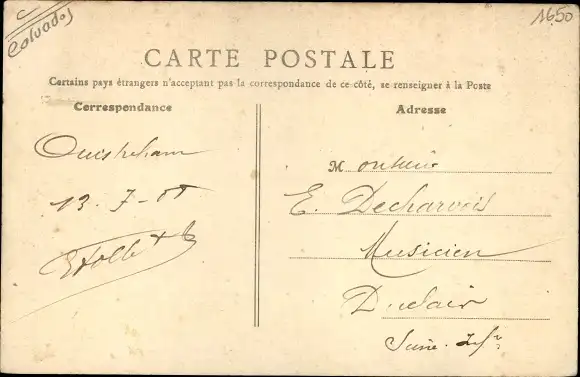 Calvados
1650
CARTE POSTALE
Certains pays étrangers n'acceptant pas la correspondance de ce côté, se renseigner à la Poste
Correspondance
Ouistreham
13-7-05
Adresse
Monsieur
E. Decharvois
Musicien
Duclair
Seine Infre